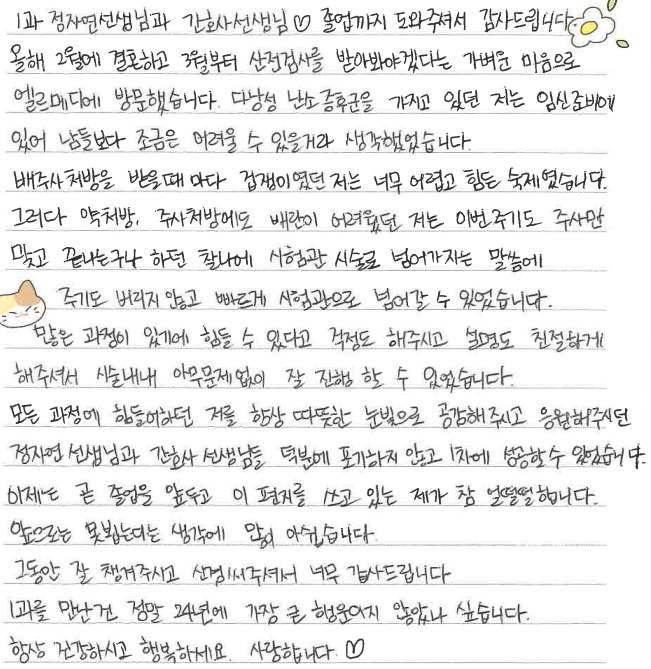 1과 정자연선생님과 간호사선생님♡ 졸업까지 도와주셔서 감사드립니다
올해 2월에 결혼하고 3월부터 산전검사를 받아봐야겠다는 가벼운 마음으로
엘르메디에 방문했습니다. 다낭성 난소증후군을 가지고 있던 저는 임신준비에
있어 남들보다 조금은 어려울 수 있을거라 생각했었습니다.
배주사처방을 받을때 마다 겁쟁이였던 저는 너무 어렵고 힘든 숙제였습니다.
그러다 약처방, 주사처방에도 배란이 어려웠던 저는 이번주기도 주사만
맞고 끝나는구나 하던 찰나에 시험관 시술로 넘어가자는 말씀에
주기도 버리지 않고 빠르게 시험관으로 넘어갈 수 있었습니다.
많은 과정이 있기에 힘들 수 있다고 걱정도 해주시고 설명도 친절하게
해주셔서 시술내내 아무문제없이 잘 진행 할 수 있었습니다.
모든 과정에 힘들어하던 저를 항상 따뜻한 눈빛으로 공감해주시고 응원해주시던
정자연선생님과 간호사 선생님들 덕분에 포기하지 않고 1차에 성공할수 있었습니다.
이제는 곧 졸업을 앞두고 이 편지를 쓰고 있는 제가 참 얼떨떨합니다.
앞으로는 못뵙는다는 생각에 많이 아쉽습니다.
그동안 잘 챙겨주시고 신경써주셔서 너무 감사드립니다
1과를 만난건 정말 24년에 가장 큰 행운이지 않았나 싶습니다.
항상 건강하시고 행복하세요. 사랑합니다.♡